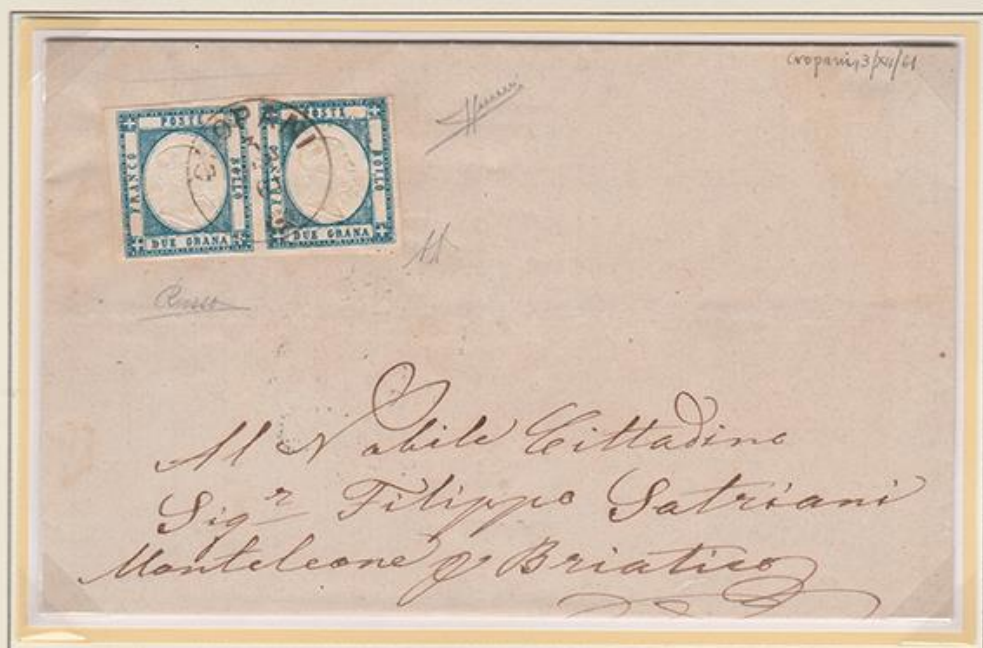 Cropani, 3/XII/61
POSTE
FRANCO
BOLLO
DUE GRANA
POSTE
FRANCO
BOLLO
DUE GRANA
OPANI
Russo
Al Nobile Cittadino
Sigr Filippo Satriani
Monteleone p Briatico